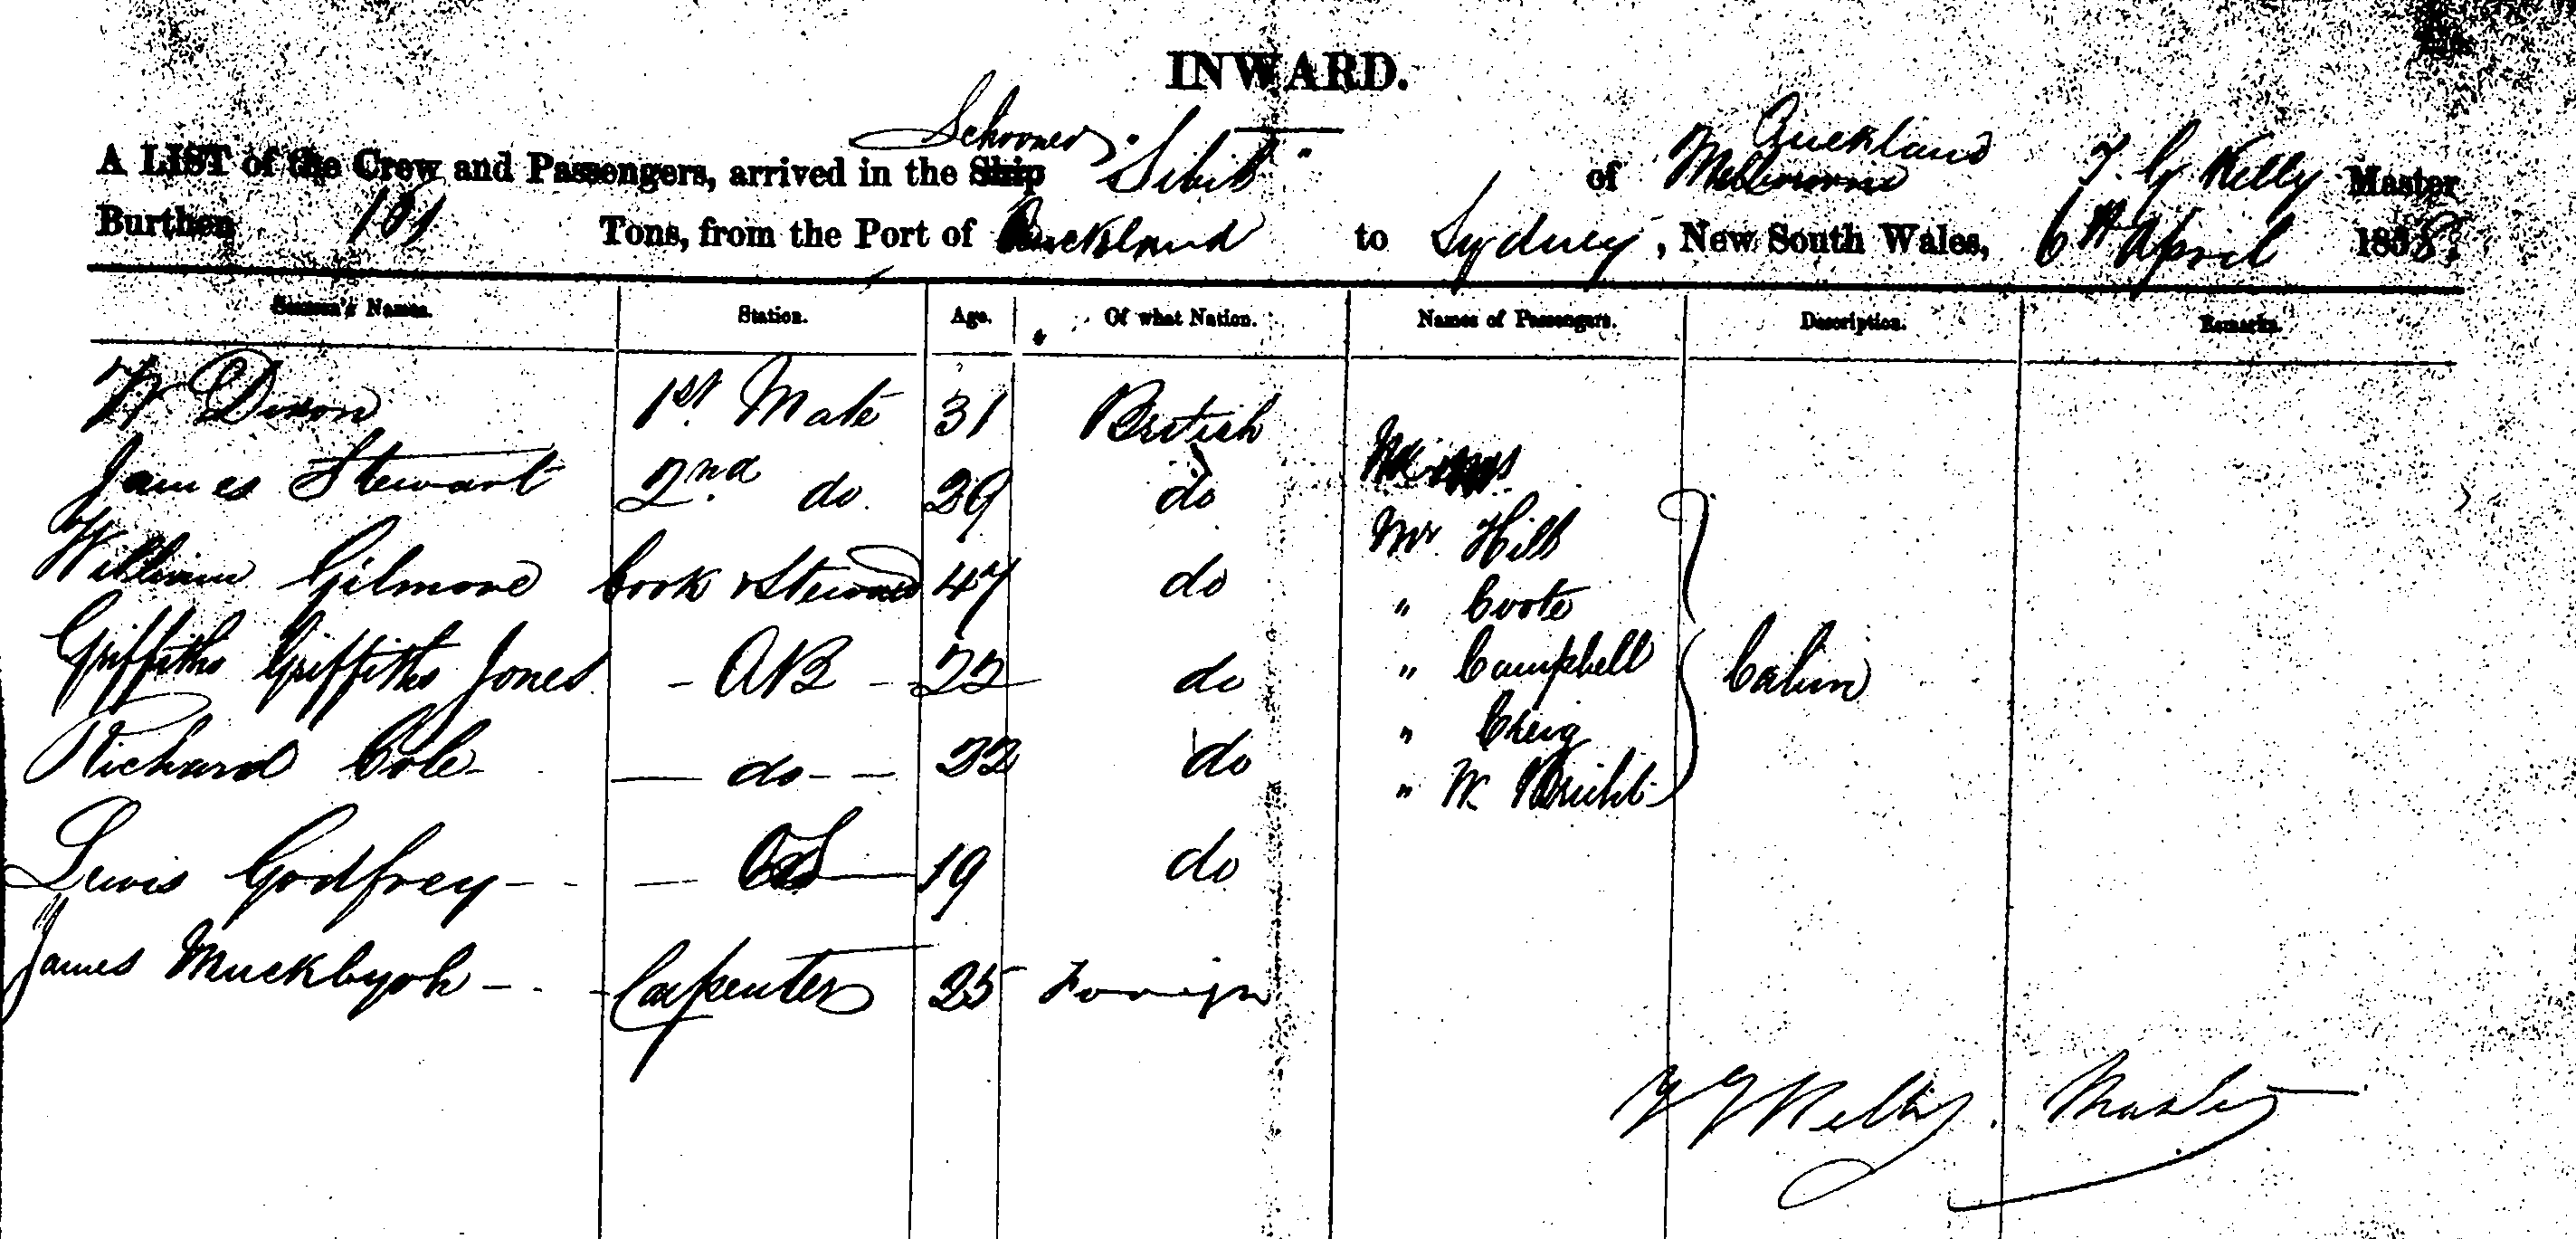 INWARD.
Schooner Auckland
A LIST of the Crew and Passengers, arrived in the Ship "Sibil" of Melbourne T. G Kelly Master
Burthen 191 Tons, from the Port of Auckland to Sydney, New South Wales, 6th April 1858.
Seamen's Names. Station. Age. Of what Nation. Names of Passengers. Description. Remarks.
W Dixon 1st Mate 31 British
James Stewart 2nd do 29 do
Mr Hill
William Gilmore Cook & Steward 47 do
" Coote
Griffiths Griffiths Jones - AB - 22 do
" Campbell Cabin
" Creig
Richard Cole - do - - 32 do
" W.
Lewis Godfrey - - - OS 19 do
James Muckbyoh - - - Carpenter 25 Foreign
T G Kelly. Master